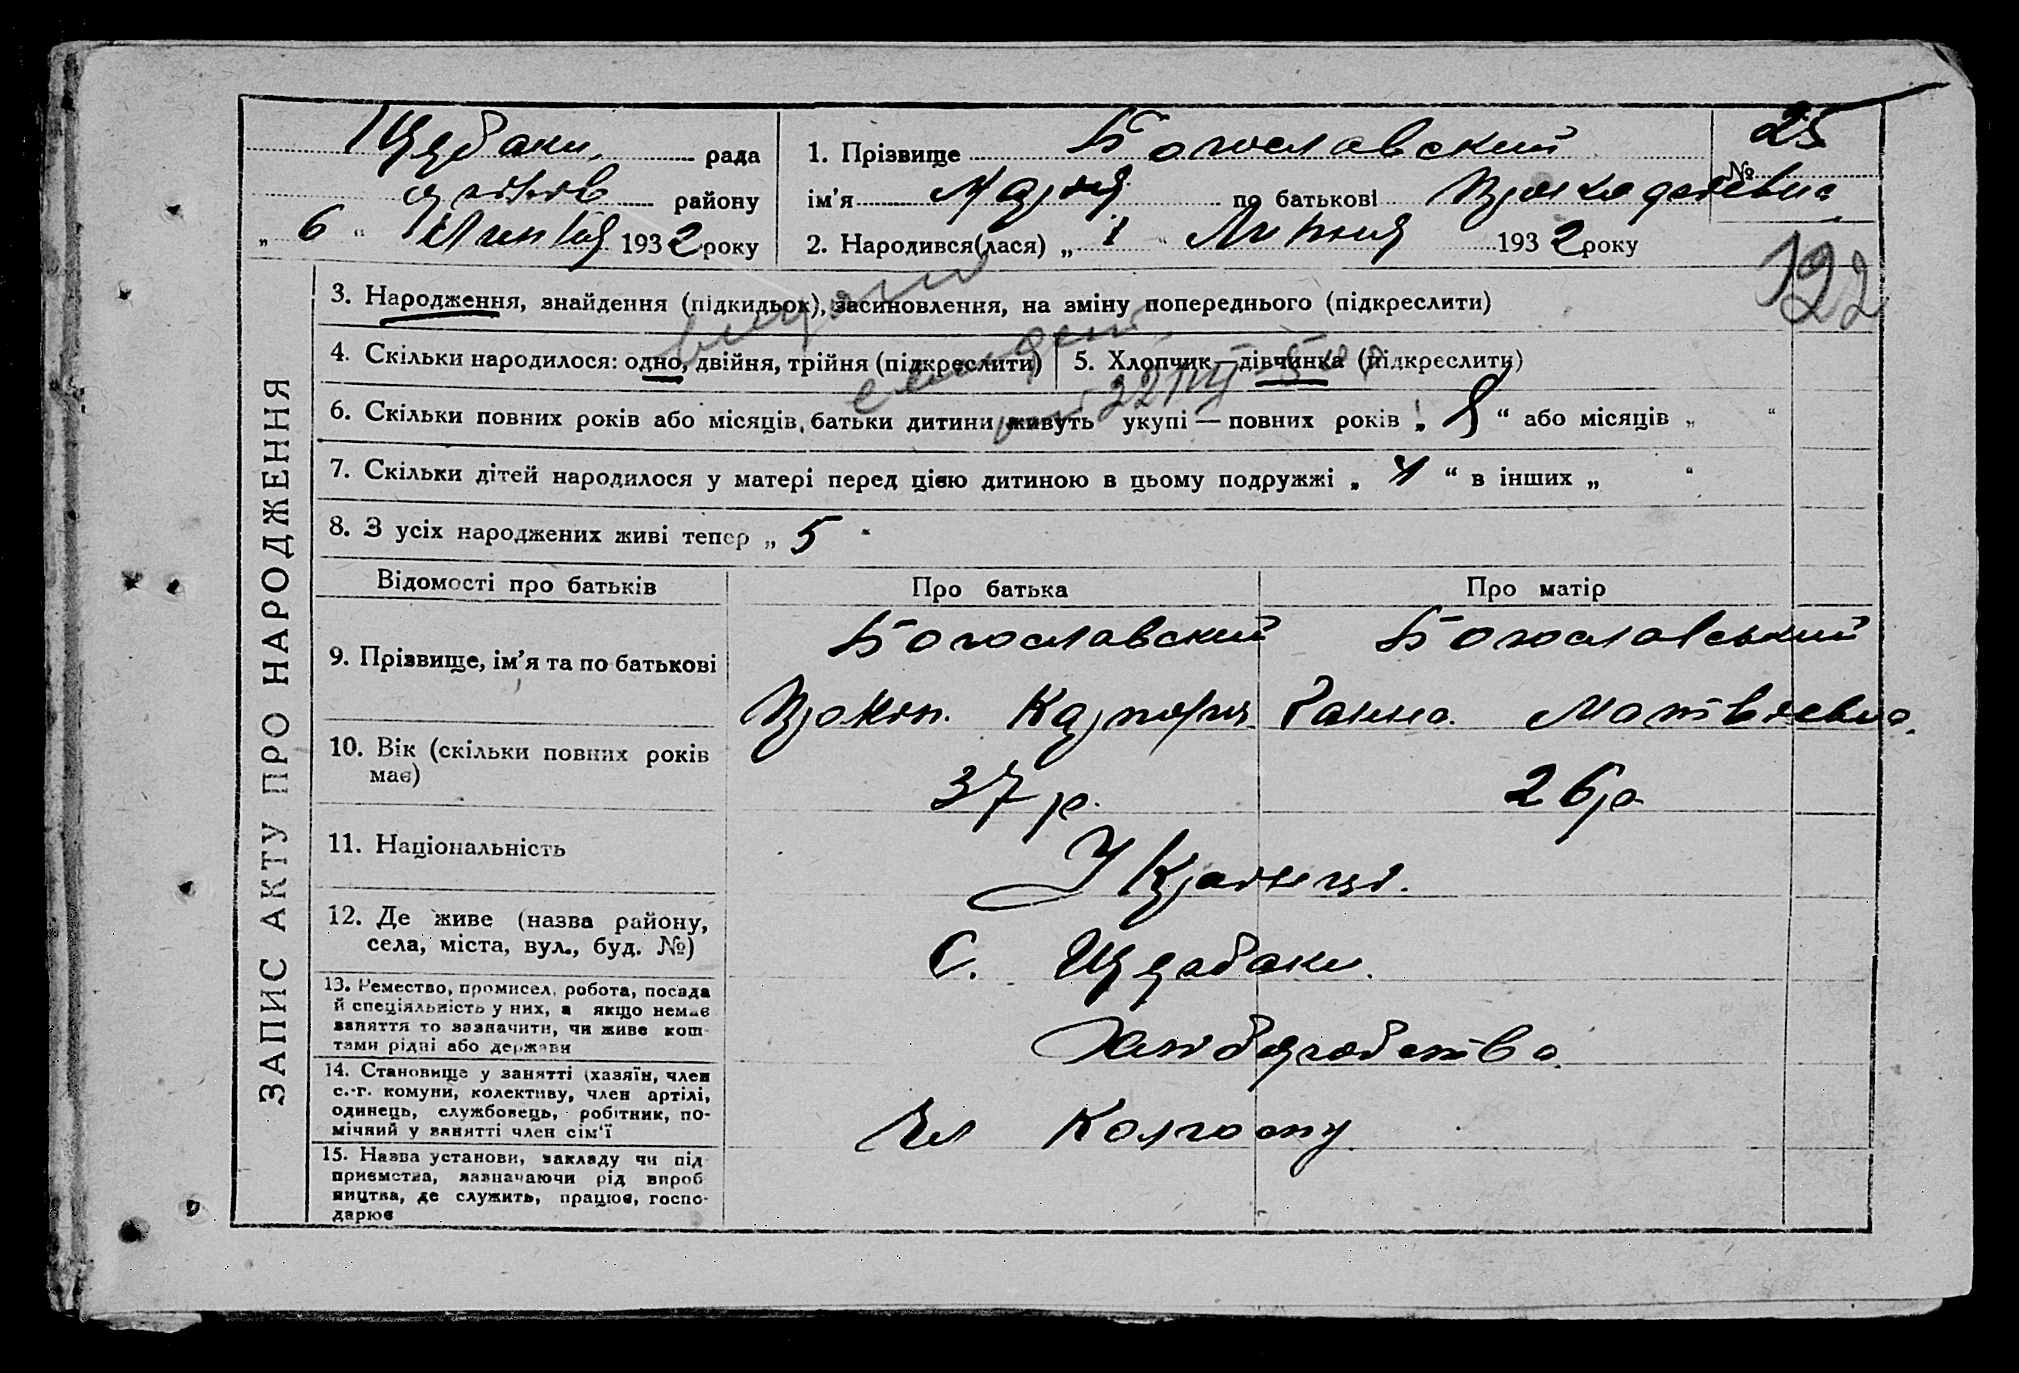 25
рада 1. Прізвище Богославский №
району ім'я Мария по батькові
„ 6 “ Липня 1932 року 2. Народився(лася) „ 1 “ Липня 1932 року
122
ЗАПИС АКТУ ПРО НАРОДЖЕННЯ
3. Народження, знайдення (підкидьок), засиновлення, на зміну попереднього (підкреслити)
4. Скільки народилося: одно, двійня, трійня (підкреслити) 5. Хлопчик—дівчинка (підкреслити)
6. Скільки повних років або місяців, батьки дитини живуть укупі — повних років „ 8 “ або місяців „ “
7. Скільки дітей народилося у матері перед цією дитиною в цьому подружжі „ 4 “ в інших „ “
8. З усіх народжених живі тепер „ 5 “
Відомості про батьків Про батька Про матір
9. Прізвище, ім'я та по батькові Богославский Богославський
Ганна Матвієвна
10. Вік (скільки повних років
має) 37 р. 26 р
11. Національність Українці.
12. Де живе (назва району,
села, міста, вул., буд. №) С.
13. Ремество, промисел, робота, посада
й спеціяльність у них, а якщо немає
заняття то зазначити, чи живе кош-
тами рідні або держави
14. Становище у занятті (хазяїн, член
с.-г. комуни, колективу, член артілі,
одинець, службовець, робітник, по-
мічний у занятті член сім'ї Чл Колгоспу
15. Назва установи, закладу чи під-
приємства, зазначаючи рід вироб-
ництва, де служить, працює, госпо-
дарює